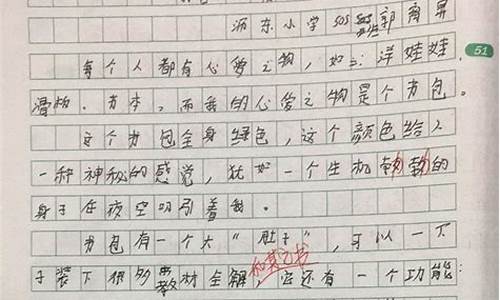 沥东小学505班郭育昇
每个人都有心爱之物，如：洋娃娃、
51
滑板、书本，而我的心爱之物是个书包。
这个书包全身绿色，这个颜色给人
一种神秘的感觉，犹如一个生机勃勃的
身子在夜空吸引着我。
书包有一个大"肚子"，可以一下
子装下很多教材全解和其它书它还有一个功能